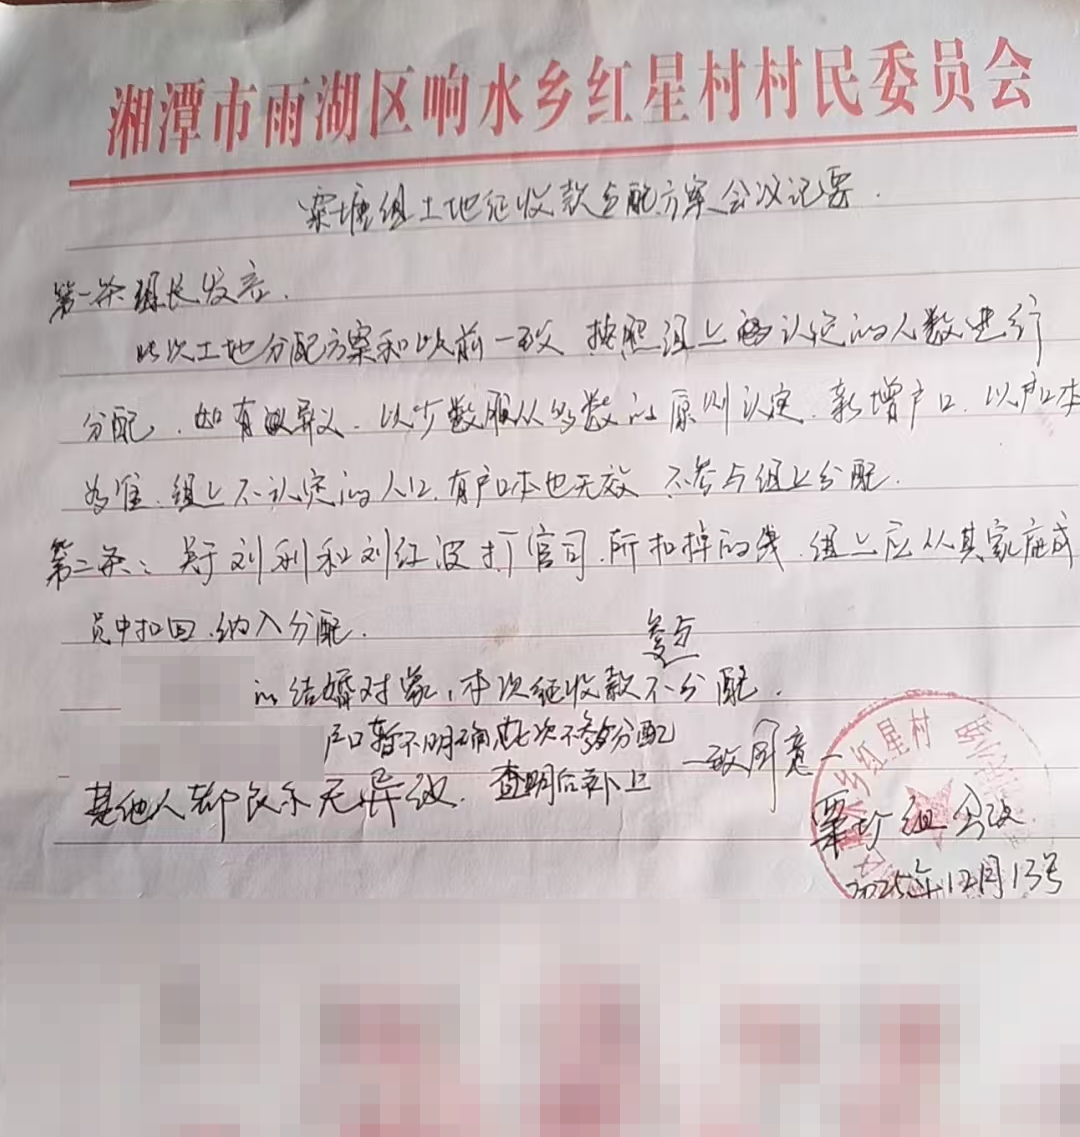 湘潭市雨湖区响水乡红星村村民委员会
栗塘组土地征收款分配方案会议记要.
第一条组长发言.
此次土地分配方案和以前一致 按照组上认定的人数进行
分配、如有异义、以少数服从多数的原则认定、新增户口、以户口本
为准、组上不认定的人口、有户口本也无效 不参与组上分配.
第二条：关于刘利和刘红波打官司、所扣掉的钱、组上应从其家庭成
员中扣回、纳入分配.
参与
的结婚对象，本次征收款不分配.
户口暂不明确此次不参与分配
一致同意
其他人都表示无异议. 查明后补上
红星村
栗塘组会议
2025年12月13号